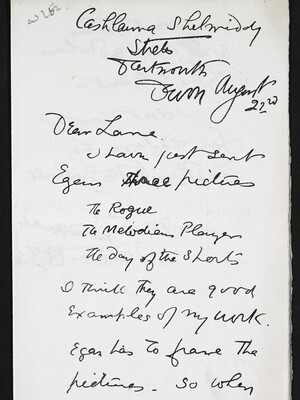 Cashlauna Shelmiddy
Strete
Dartmouth
Devon August
22nd
Dear Lane.
I have just sent
Egan three pictures
The Rogue
The Melodion Player
The day of the Sports
I think they are good
Examples of my work.
Egan has to frame the
pictures. So when